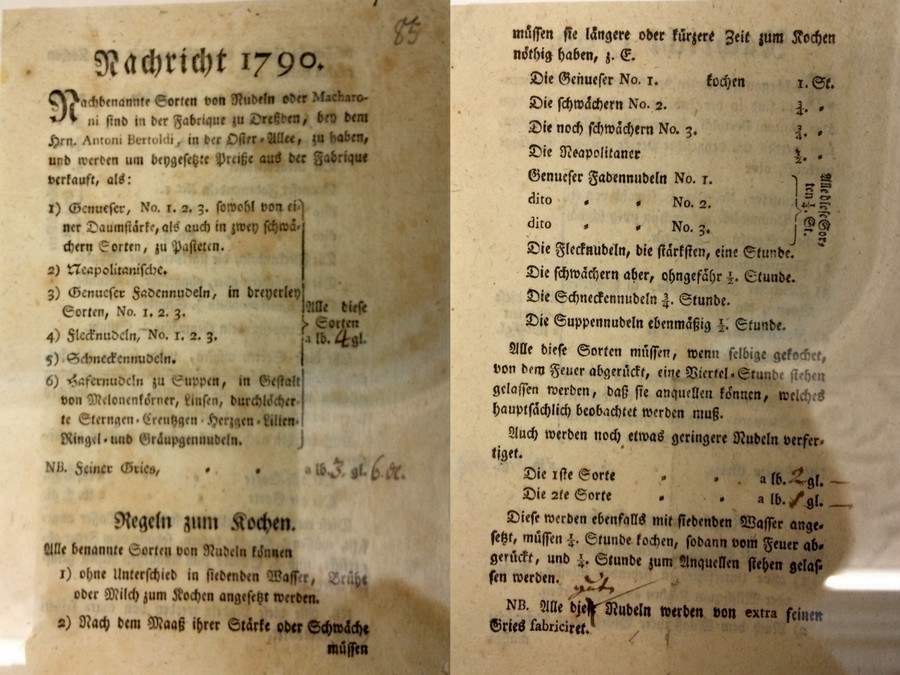 85
Nachricht 1790.
Nachbenannte Sorten von Nudeln oder Macharo-
ni sind in der Fabrique zu Dreßden, bey dem
Hrn. Antoni Bertoldi, in der Oster-Allee, zu haben,
und werden um beygesetzte Preiße aus der Fabrique
verkauft, als:
1) Genueser, No. 1. 2. 3. sowohl von ei-
ner Daumstärke, als auch in zwey schwä-
chern Sorten, zu Pasteten.
2) Neapolitanische.
3) Genueser Fadennudeln, in dreyerley
Sorten, No. 1. 2. 3.
4) Flecknudeln, No. 1. 2. 3.
5) Schneckennudeln.
6) Hafernudeln zu Suppen, in Gestalt
von Melonenkörner, Linsen, durchlöcher-
te Sterngen-Creutzgen-Herzgen-Lilien-
Ringel-und Gräupgennudeln.
Alle diese
Sorten
a lb. 4 gl.
NB. Feiner Gries, a lb. 3. gl. 6.
Regeln zum Kochen.
Alle benannte Sorten von Nudeln können
1) ohne Unterschied in siedenden Wasser, Brühe
oder Milch zum Kochen angesetzt werden.
2) Nach dem Maaß ihrer Stärke oder Schwäche
müssen
müssen sie längere oder kürzere Zeit zum Kochen
nöthig haben, z. E.
Die Genueser No. 1. kochen 1. St.
Die schwächern No. 2. ¾. "
Die noch schwächern No. 3. ¾. "
Die Neapolitaner ½. "
Genueser Fadennudeln No. 1.
dito " " No. 2.
dito " " No. 3.
Alle diese Sor-
ten ¼. St.
Die Flecknudeln, die stärksten, eine Stunde.
Die schwächern aber, ohngefähr ½. Stunde.
Die Schneckennudeln ¾. Stunde.
Die Suppennudeln ebenmäßig ½. Stunde.
Alle diese Sorten müssen, wenn selbige gekochet,
von dem Feuer abgerückt, eine Viertel-Stunde stehen
gelassen werden, daß sie anquellen können, welches
hauptsächlich beobachtet werden muß.
Auch werden noch etwas geringere Nudeln verfer-
tiget.
Die 1ste Sorte " " a lb. 2 gl. —
Die 2te Sorte " " a lb. 1 gl. —
Diese werden ebenfalls mit siedenden Wasser ange-
setzt, müssen ¼. Stunde kochen, sodann vom Feuer ab-
gerückt, und ¼. Stunde zum Anquellen stehen gelas-
sen werden.
gute
NB. Alle diese Nudeln werden von extra feinen
Gries fabriciret.